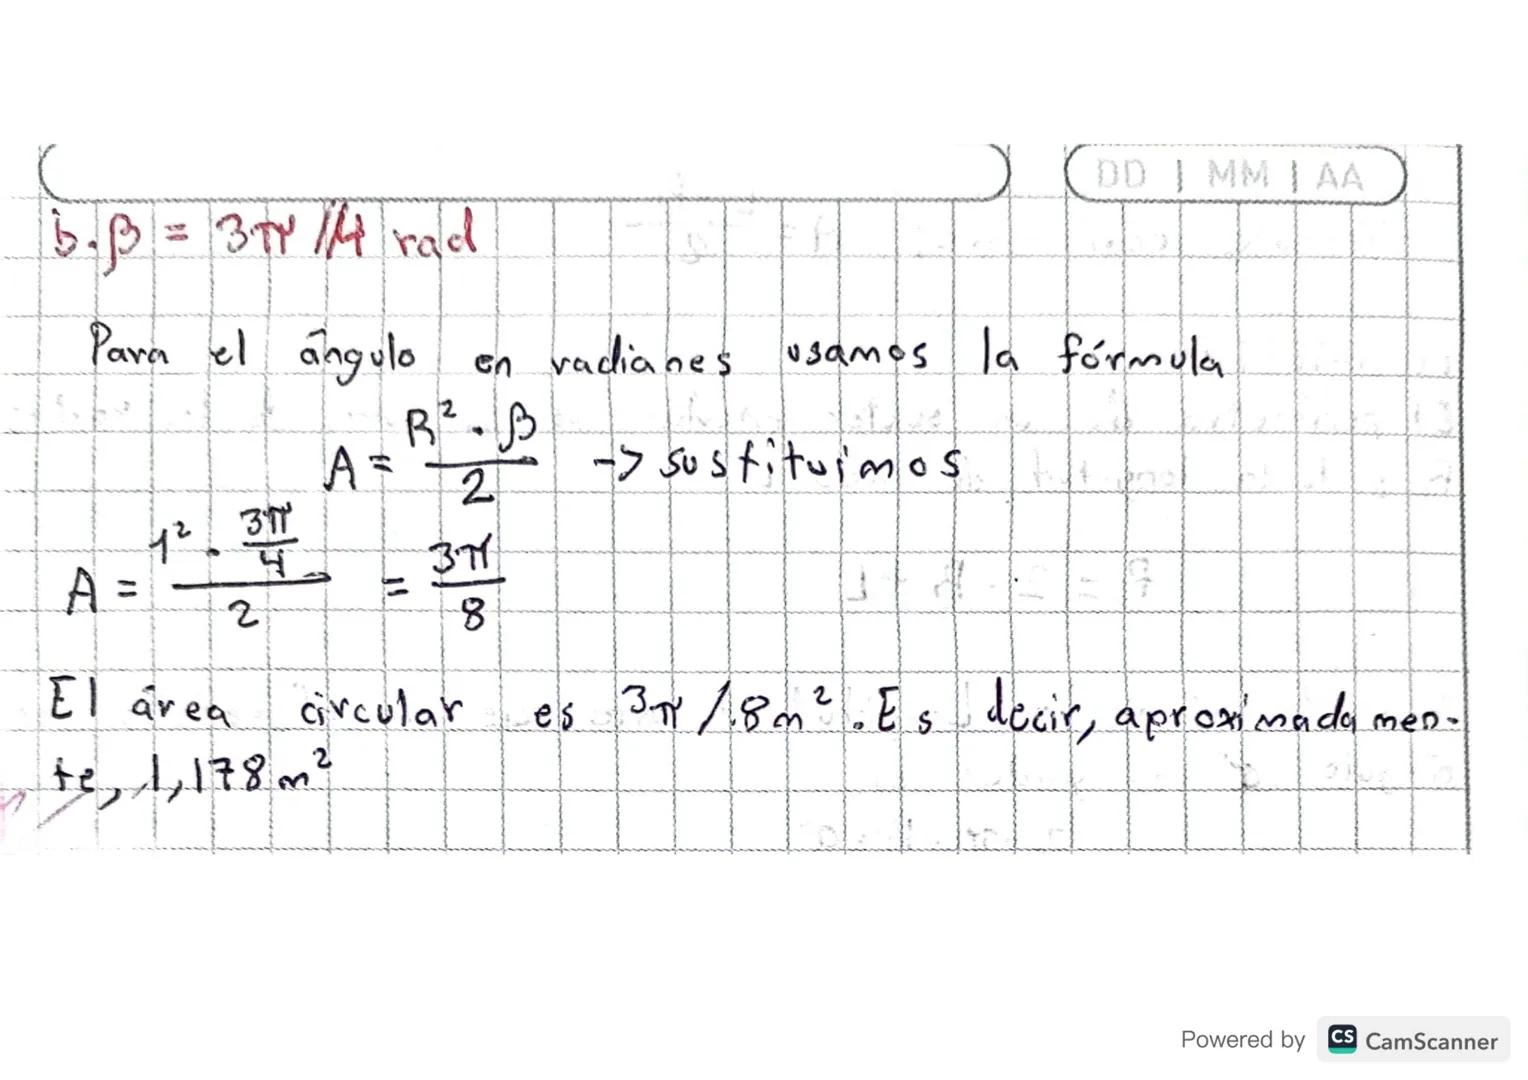 DD | MM | AA
b. β = 3π/4 rad
Para el ángulo en radianes usamos la fórmula
A = (R² · β)/2 -> sustituimos
A = (1² · 3π/4)/2 = 3π/8
El área circular es 3π/8 m². Es decir, aproximadamen-
te, 1,178 m²
Powered by CS CamScanner